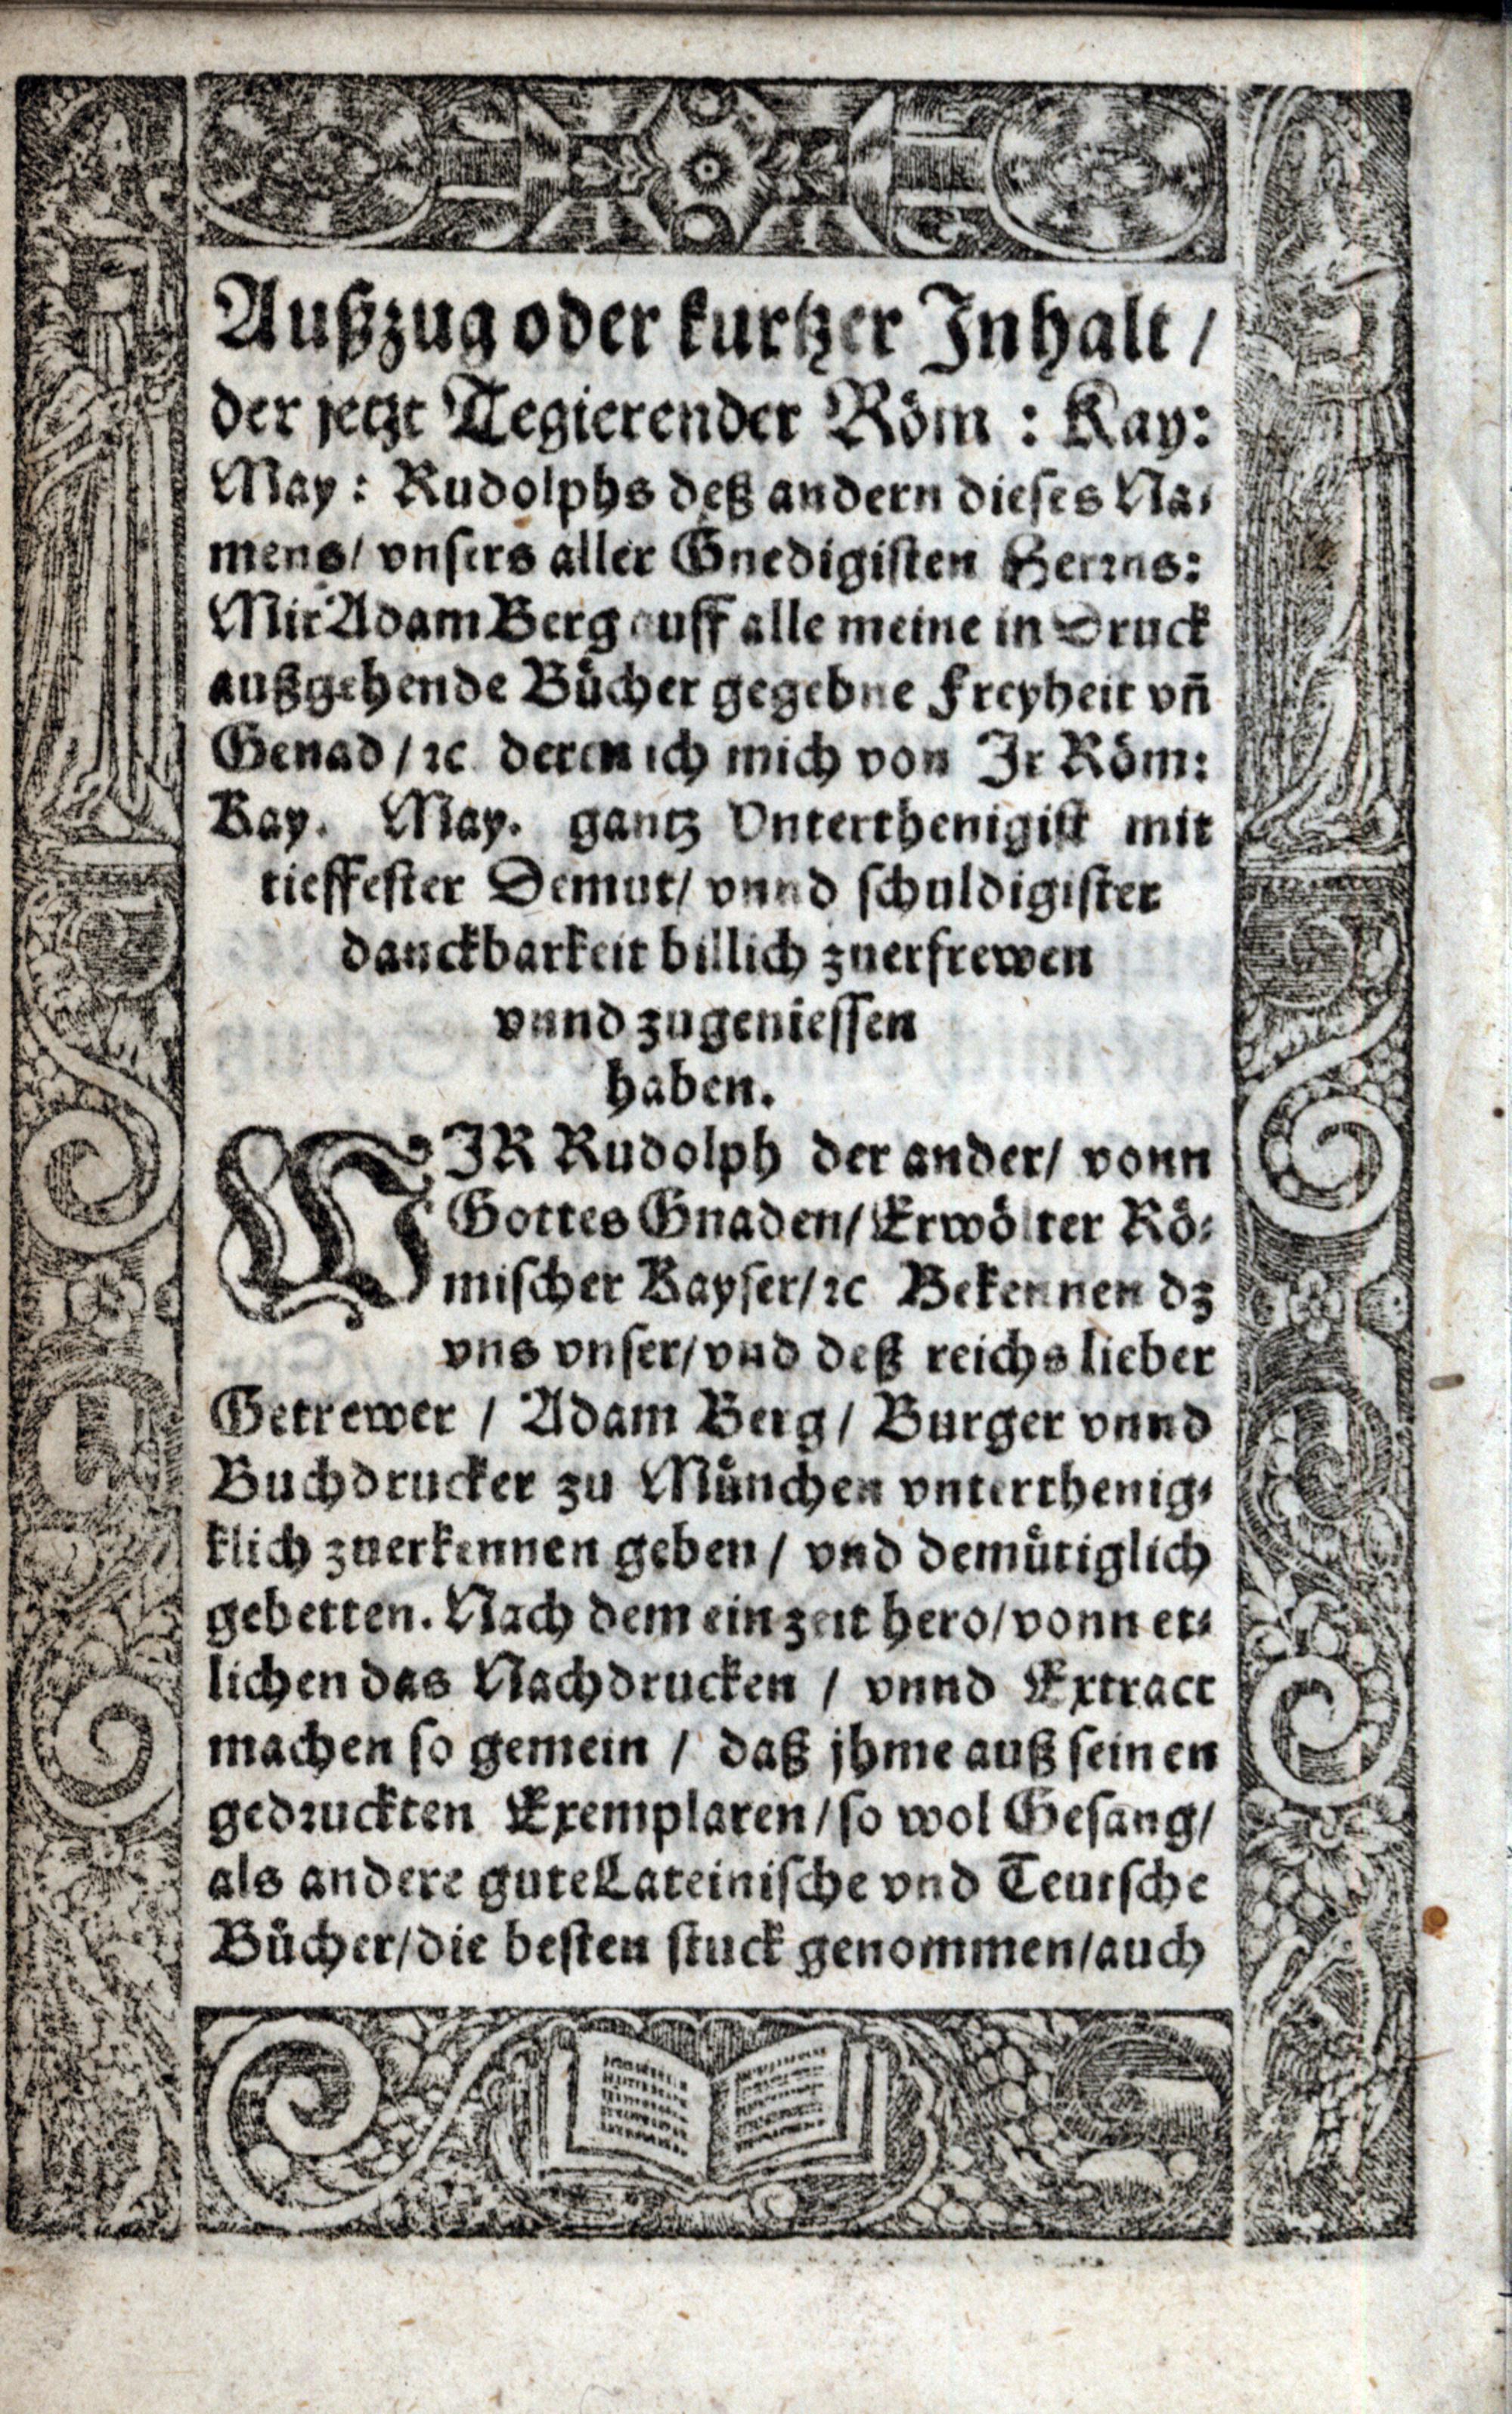 Außzug oder kurtzer Inhalt /
der jetzt Regierender Röm : Kay:
May : Rudolphs deß andern dieses Na⸗
mens/ vnsers aller Gnedigisten Herrns:
Mir Adam Berg auff alle meine in Druck
außgehende Bůcher gegebne Freyheit vñ
Genad / ꝛc deren ich mich von Jr Röm:
Kay. May. gantz Vnterthenigist mit
tieffester Demut/ vnnd schuldigister
danckbarkeit billich zuerfrewen
vnnd zugeniessen
haben.
WJR Rudolph der ander/ vonn
Gottes Gnaden/ Erwölter Rö⸗
mischer Kayser/ ꝛc Bekennen dz
vns vnser/ vnd deß reichs lieber
Getrewer / Adam Berg / Burger vnnd
Buchdrucker zu Můnchen vnterthenig⸗
klich zuerkennen geben / vnd demůtiglich
gebetten. Nach dem ein zeit hero/ vonn et⸗
lichen das Nachdrucken / vnnd Extract
machen so gemein / daß jhme auß seinen
gedruckten Exemplaren / so wol Gesang/
als andere gute Lateinische vnd Teutsche
Bůcher/ die besten stuck genommen/ auch